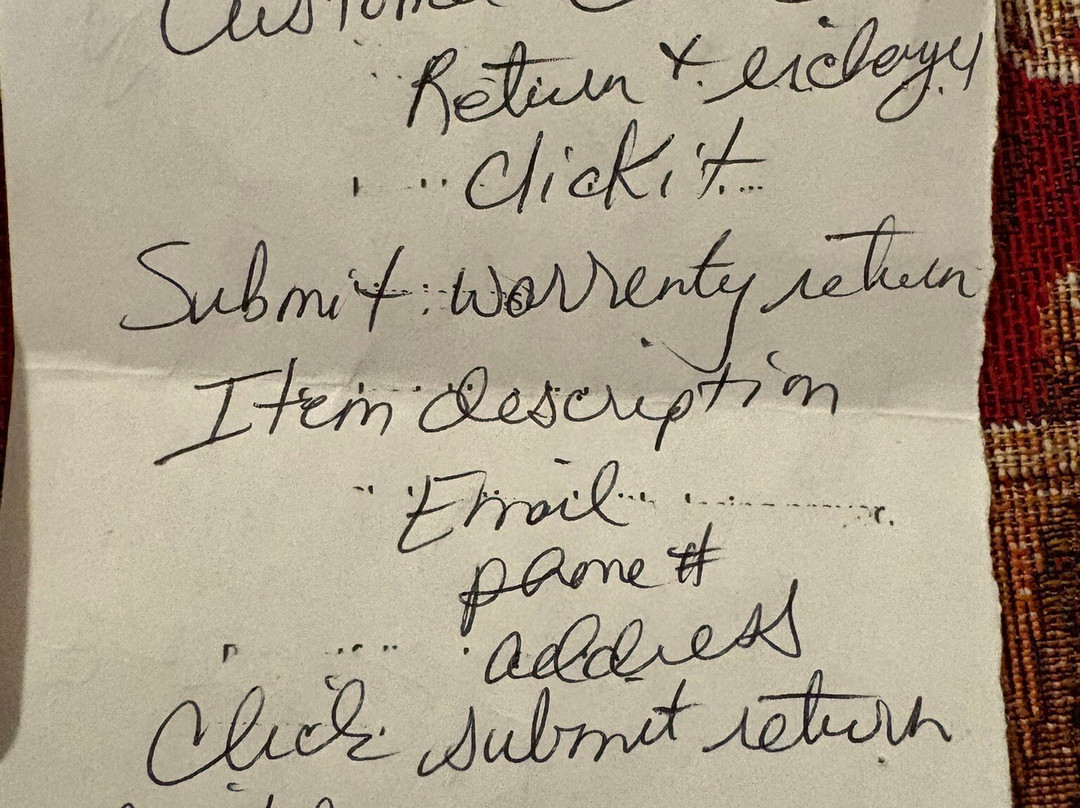 Customer
Return + exchange
Click it
Submit warrenty return
Item description
Email
phone #
address
Click submit return